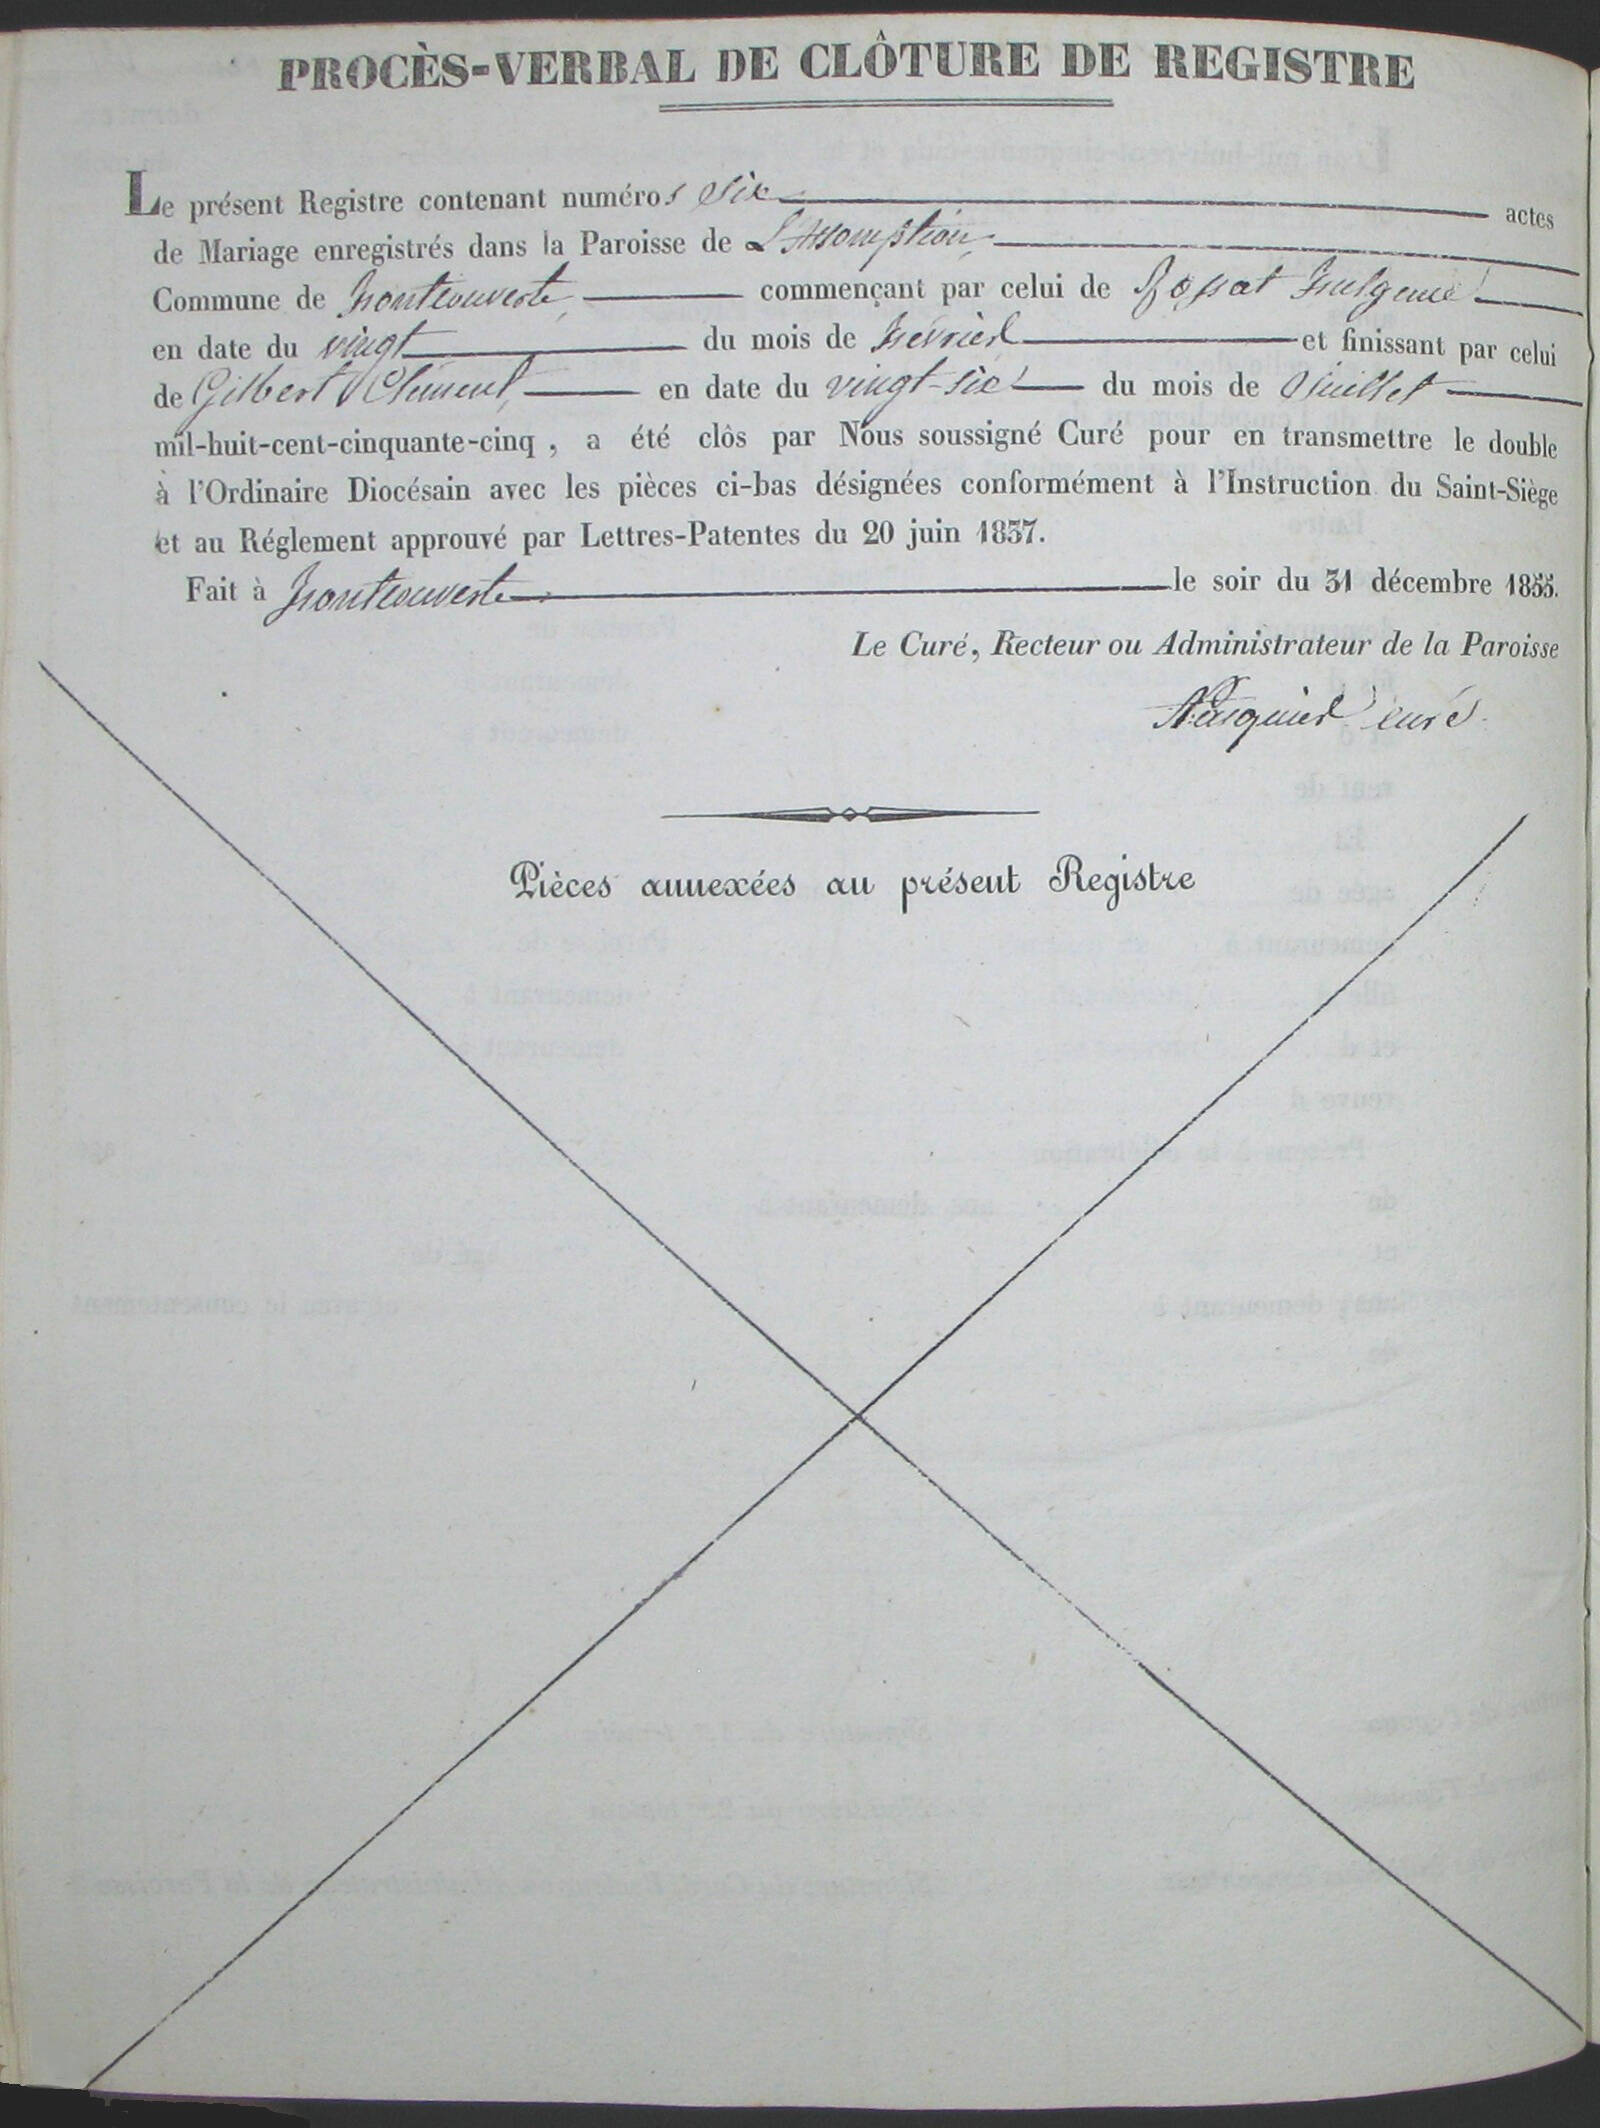 PROCÈS-VERBAL DE CLÔTURE DE REGISTRE
Le présent Registre contenant numéros Six actes
de Mariage enregistrés dans la Paroisse de L'Assomption,
Commune de Frontcouverte, commençant par celui de Rossat Fulgence
en date du vingt du mois de Février et finissant par celui
de Gilbert Clément, en date du vingt-six du mois de Juillet
mil-huit-cent-cinquante-cinq, a été clôs par Nous soussigné Curé pour en transmettre le double
à l'Ordinaire Diocésain avec les pièces ci-bas désignées conformément à l'Instruction du Saint-Siège
et au Réglement approuvé par Lettres-Patentes du 20 juin 1837.
Fait à Frontcouverte le soir du 31 décembre 1855.
Le Curé, Recteur ou Administrateur de la Paroisse
curé
Pièces annexées au présent Registre